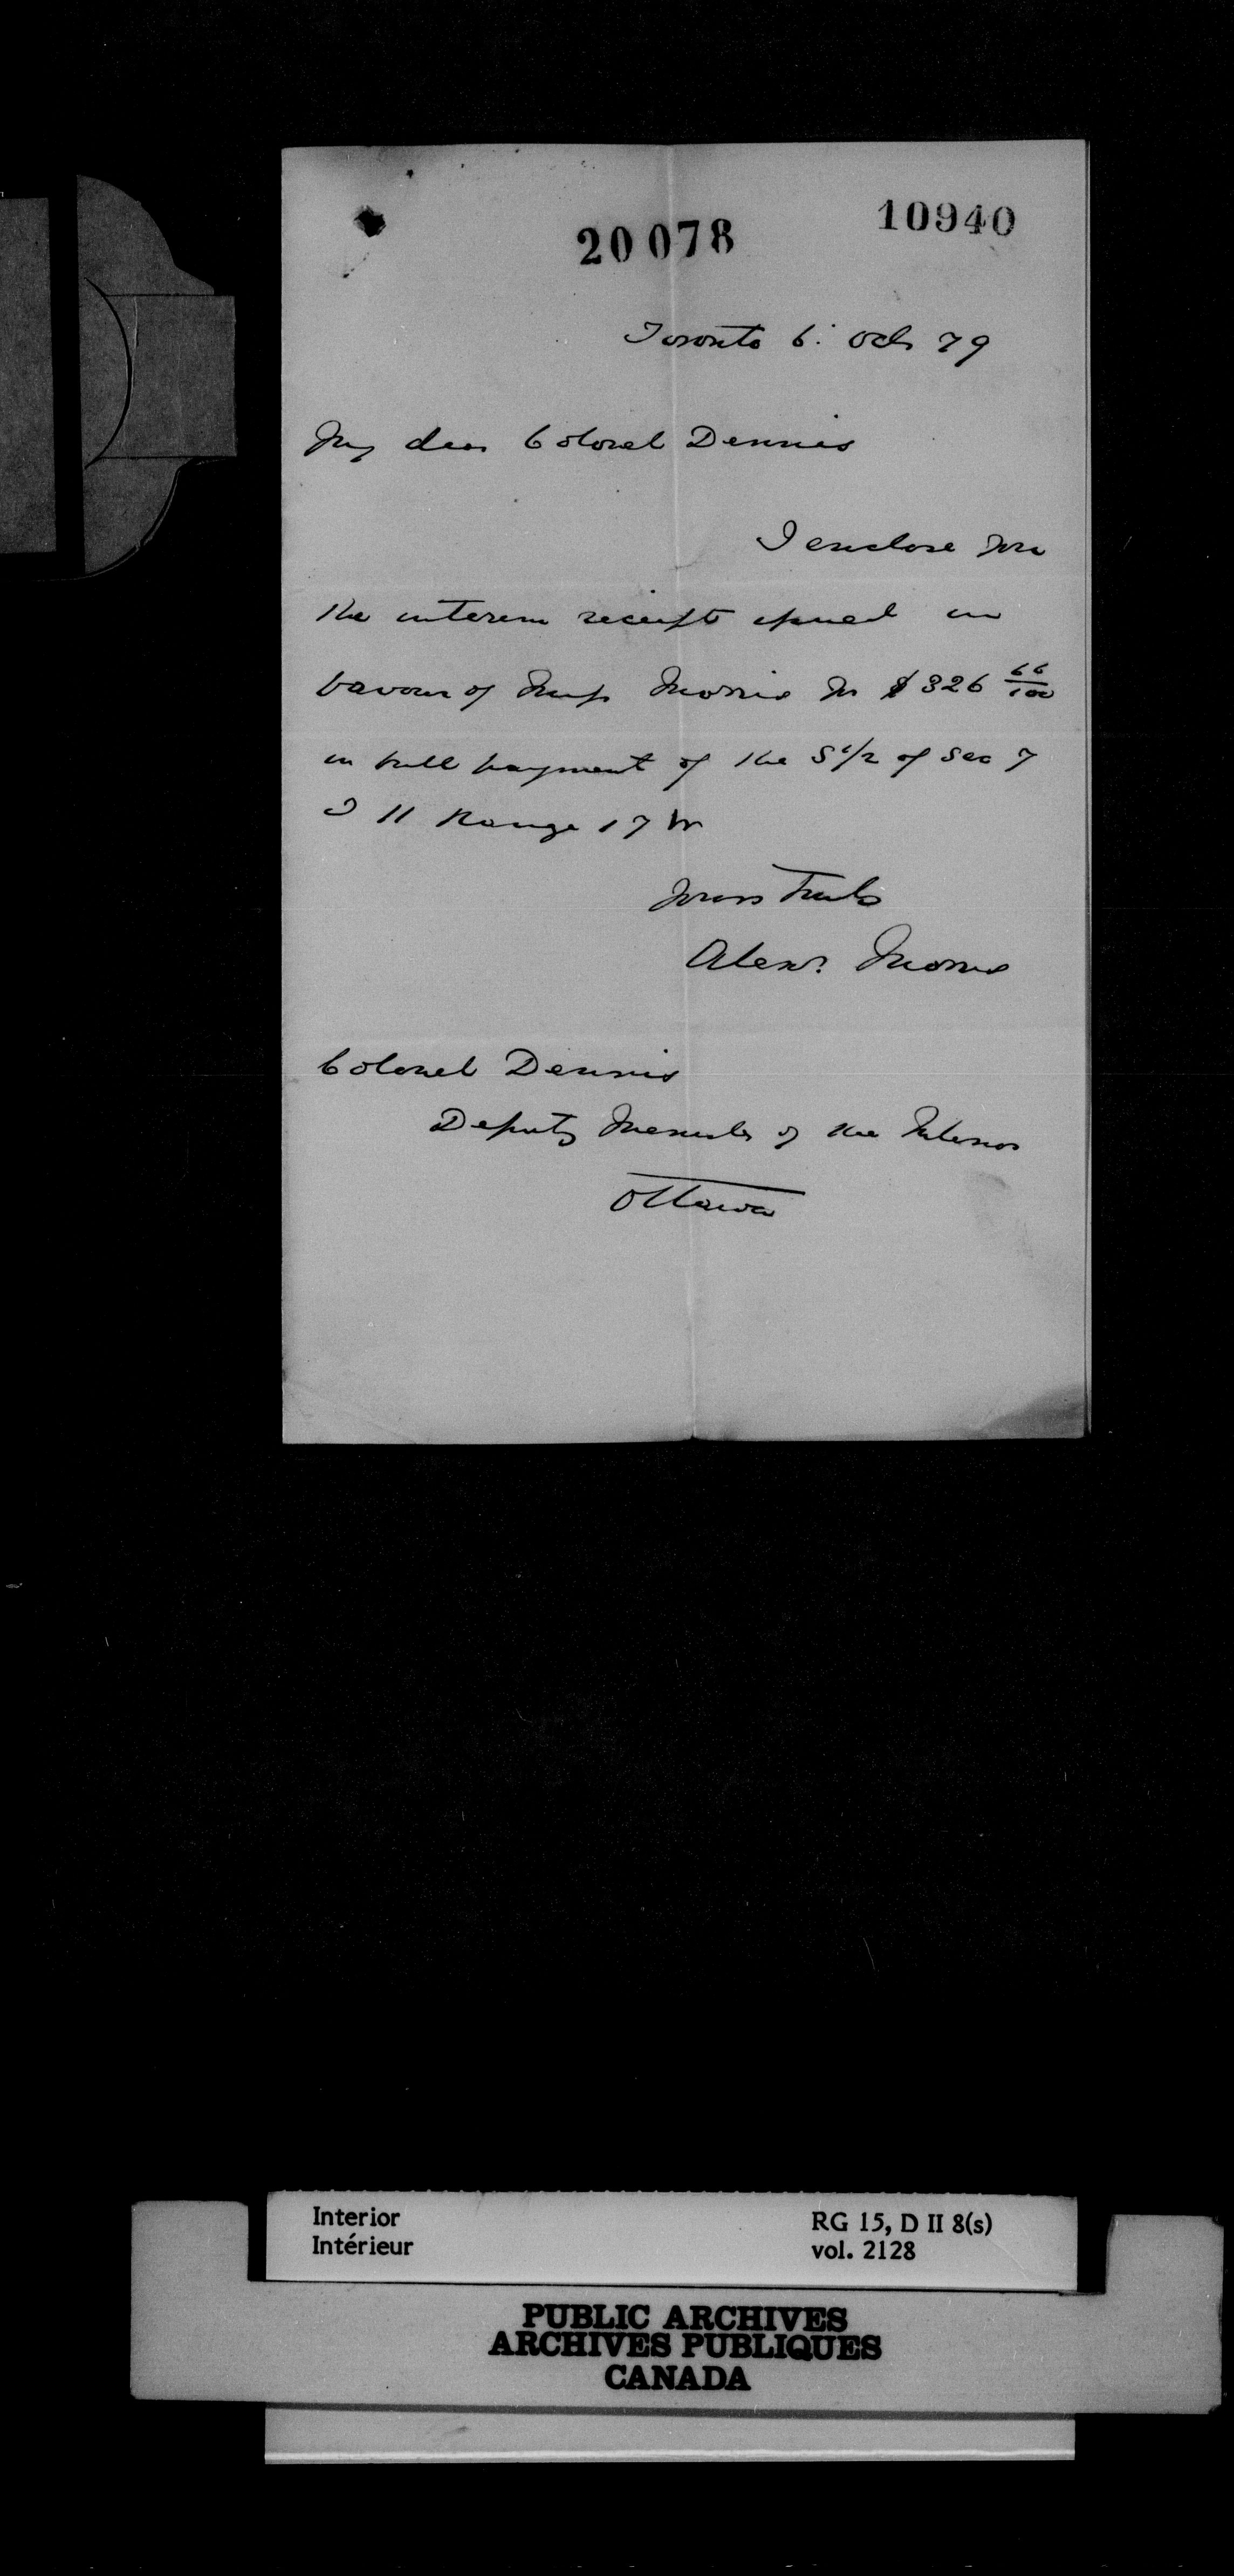 20078
10940
Toronto 6: Oct 79
My dear Colonel Dennis
I enclose you
the interim receipt issued in
favour of Miss Morris for $326 66/100
in full payment of the S 1/2 of Sec 7
T 11 Range 17 W
Yours truly
Alexr. Morris
Colonel Dennis
Deputy Minister of the Interior
Ottawa
Interior
Intérieur
RG 15, D II 8(s)
vol. 2128
PUBLIC ARCHIVES
ARCHIVES PUBLIQUES
CANADA